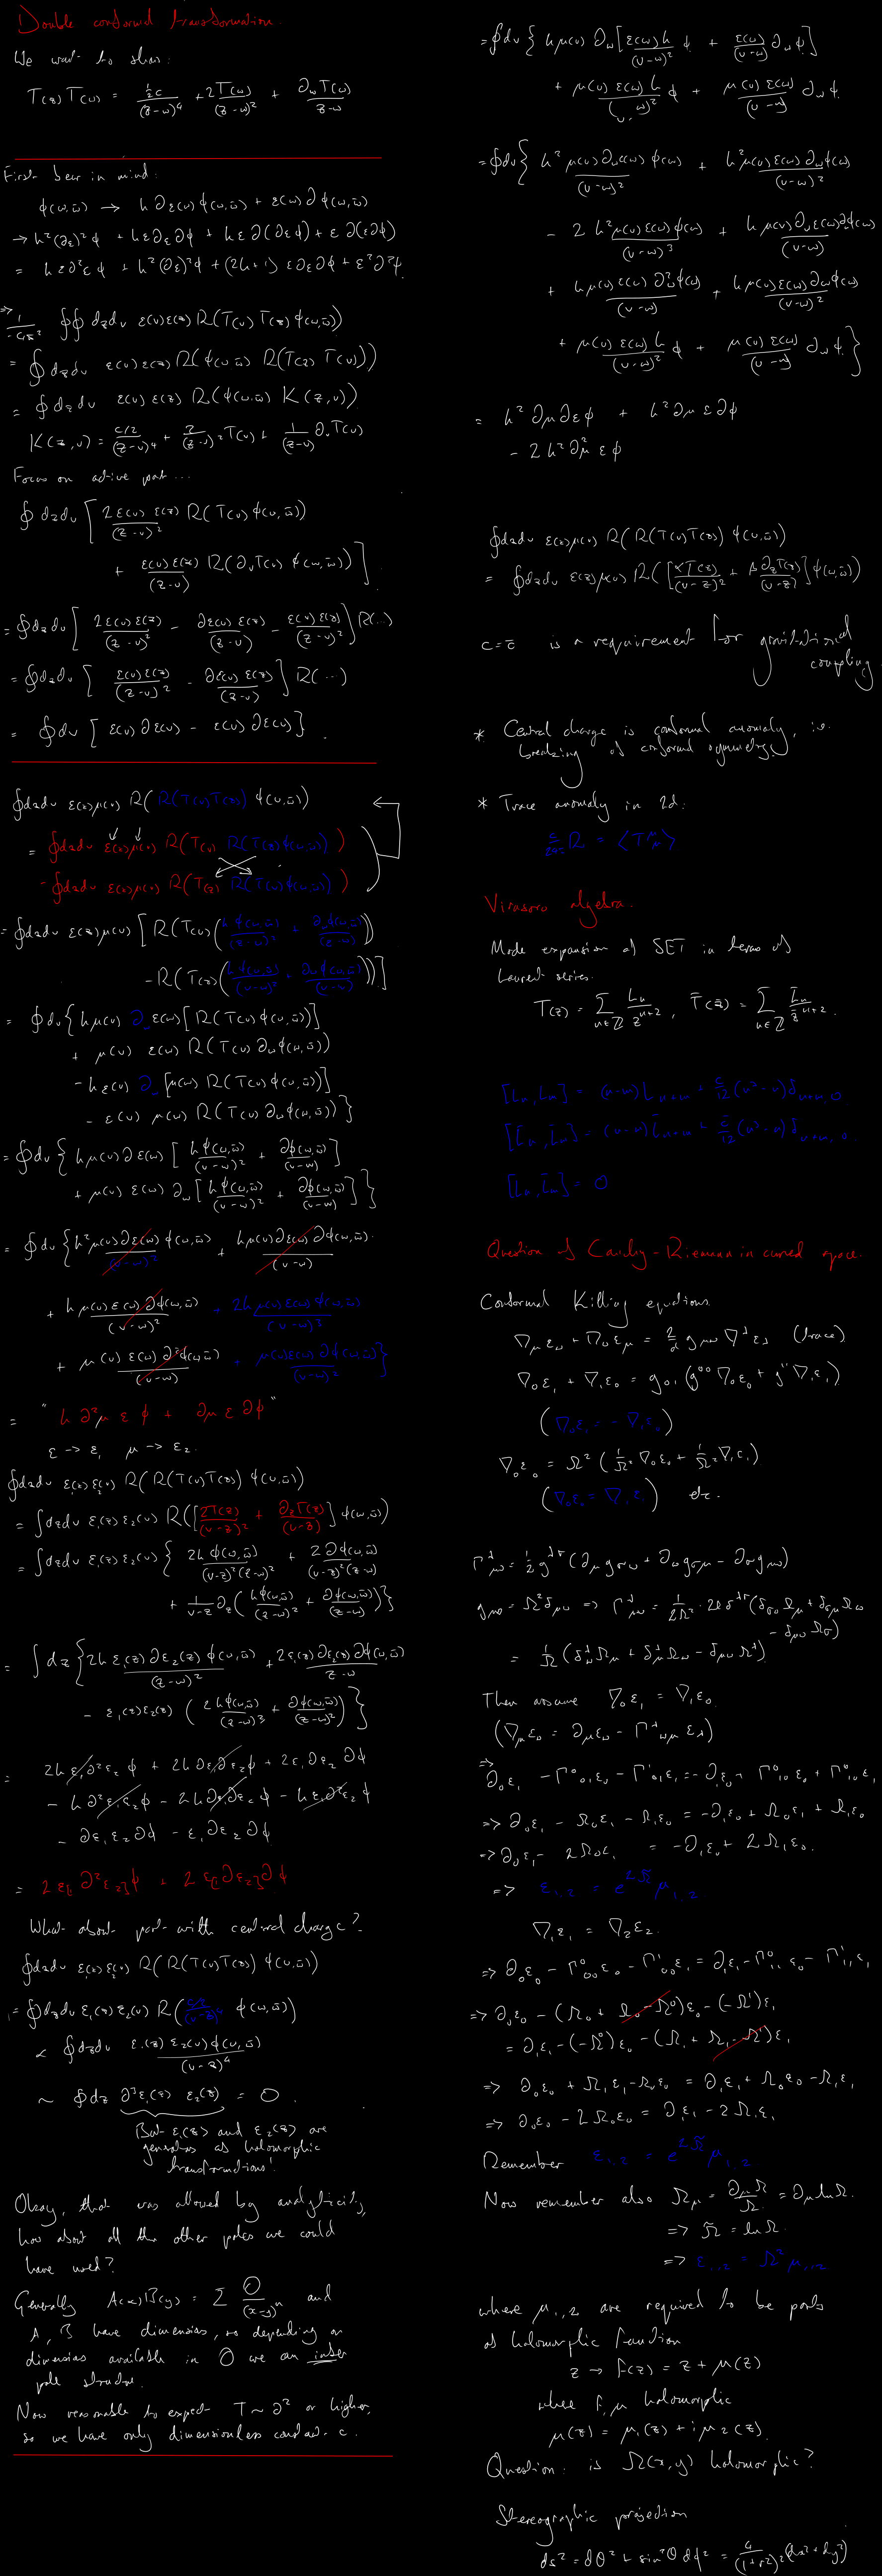 Double conformal transformation.
We want to show:
T(z)T(w) = ½c/(z-w)⁴ + 2T(w)/(z-w)² + ∂_wT(w)/(z-w)
First bear in mind:
ϕ(w,w̄) → h∂ε(w)ϕ(w,w̄) + ε(w)∂ϕ(w,w̄)
→ h²(∂ε)²ϕ + hε∂ε∂ϕ + hε∂(∂εϕ) + ε∂(ε∂ϕ)
= hε∂²εϕ + h²(∂ε)²ϕ + (2h+1)ε∂ε∂ϕ + ε²∂²ϕ.
∮∮ dzdv ε(v)ε(z) R(T(v)T(z)ϕ(w,w̄))
= ∮ dzdv ε(v)ε(z) R(ϕ(w,w̄) R(T(z)T(v)))
= ∮ dzdv ε(v)ε(z) R(ϕ(w,w̄) K(z,v))
K(z,v) = (c/2)/(z-v)⁴ + 2/(z-v)² T(v) + 1/(z-v) ∂_vT(v)
Focus on active part...
∮ dzdv [ 2ε(v)ε(z)/(z-v)² R(T(v)ϕ(w,w̄))
+ ε(v)ε(z)/(z-v) R(∂_vT(v)ϕ(w,w̄)) ]
= ∮dzdv [ 2ε(v)ε(z)/(z-v)² - ∂ε(v)ε(z)/(z-v) - ε(v)ε(z)/(z-v)² ] R(...)
= ∮dzdv [ ε(v)ε(z)/(z-v)² - ∂ε(v)ε(z)/(z-v) ] R(...)
= ∮dv [ ε(v)∂ε(v) - ε(v)∂ε(v) ] .
∮dzdv ε(z)μ(v) R( R(T(v)T(z)) ϕ(w,w̄))
= ∮dzdv ε(z)μ(v) R(T(v) R(T(z)ϕ(w,w̄)))
- ∮dzdv ε(z)μ(v) R(T(z) R(T(v)ϕ(w,w̄)))
= ∮dzdv ε(z)μ(v) [ R(T(v)(hϕ(w,w̄)/(z-w)² + ∂_wϕ(w,w̄)/(z-w)))
- R(T(z)(hϕ(w,w̄)/(v-w)² + ∂_wϕ(w,w̄)/(v-w))) ]
= ∮dv { hμ(v) ∂_w ε(w) [R(T(v)ϕ(w,w̄))]
+ μ(v) ε(w) R(T(v)∂_wϕ(w,w̄))
- hε(v) ∂_w [μ(w) R(T(v)ϕ(w,w̄))]
- ε(v) μ(w) R(T(v)∂_wϕ(w,w̄)) }
= ∮dv { hμ(v)∂ε(w) [ hϕ(w,w̄)/(v-w)² + ∂ϕ(w,w̄)/(v-w) ]
+ μ(v)ε(w)∂_w [ hϕ(w,w̄)/(v-w)² + ∂ϕ(w,w̄)/(v-w) ] }
= ∮dv { h²μ(v)∂ε(w)ϕ(w,w̄)/(v-w)² + hμ(v)∂ε(w)∂ϕ(w,w̄)/(v-w)
+ hμ(v)ε(w)∂ϕ(w,w̄)/(v-w)² + 2hμ(v)ε(w)ϕ(w,w̄)/(v-w)³
+ μ(v)ε(w)∂²ϕ(w,w̄)/(v-w) + μ(v)ε(w)∂ϕ(w,w̄)/(v-w)² }
= "h∂²μ ε ϕ + ∂μ ε ∂ϕ"
ε → ε₁ μ → ε₂.
∮dzdv ε₁(z)ε₂(v) R(R(T(v)T(z)) ϕ(w,w̄))
= ∫dzdv ε₁(z)ε₂(v) R([2T(z)/(v-z)² + ∂_zT(z)/(v-z)] ϕ(w,w̄))
= ∫dzdv ε₁(z)ε₂(v) { 2hϕ(w,w̄)/(v-z)²(z-w)² + 2∂ϕ(w,w̄)/(v-z)²(z-w)
+ 1/(v-z) ∂_z(hϕ(w,w̄)/(z-w)² + ∂ϕ(w,w̄)/(z-w)) }
= ∫dz { 2hε₁(z)∂ε₂(z)ϕ(w,w̄)/(z-w)² + 2ε₁(z)∂ε₂(z)∂ϕ(w,w̄)/(z-w)
- ε₁(z)ε₂(z) (2hϕ(w,w̄)/(z-w)³ + ∂ϕ(w,w̄)/(z-w)²) }
= 2hε₁∂²ε₂ϕ + 2h∂ε₁∂ε₂ϕ + 2ε₁∂ε₂∂ϕ
- h∂²ε₁ε₂ϕ - 2h∂ε₁∂ε₂ϕ - hε₁∂²ε₂ϕ
- ∂ε₁ε₂∂ϕ - ε₁∂ε₂∂ϕ
= 2ε[₁∂²ε₂]ϕ + 2ε[₁∂ε₂]∂ϕ
What about part with central charge?
∮dzdv ε₁(z)ε₂(v) R(R(T(v)T(z)) ϕ(w,w̄))
= ∮dzdv ε₁(z)ε₂(v) R((c/2)/(v-z)⁴ ϕ(w,w̄))
∝ ∮dzdv ε₁(z)ε₂(v)ϕ(w,w̄)/(v-z)⁴
~ ∮dz ∂³ε₁(z) ε₂(z) = 0.
But ε₁(z) and ε₂(z) are
generators of holomorphic
transformations!
Okay, that was allowed by analyticity,
how about all the other poles we could
have used?
Generally A(x)B(y) = Σ O/(x-y)ⁿ and
A, B have dimensions, so depending on
dimensions available in O we can infer
pole structure.
Now reasonable to expect T ~ ∂² or higher,
so we have only dimensionless constant c.
= ∮dv { hμ(v) ∂_w [ ε(w)h/(v-w)² ϕ + ε(w)/(v-w) ∂_wϕ ]
+ μ(v)ε(w)h/(v-w)² ϕ + μ(v)ε(w)/(v-w) ∂_wϕ.
= ∮dv { h²μ(v)∂_wε(w)ϕ(w)/(v-w)² + h²μ(v)ε(w)∂_wϕ(w)/(v-w)²
- 2h²μ(v)ε(w)ϕ(w)/(v-w)³ + hμ(v)∂_wε(w)∂_wϕ(w)/(v-w)
+ hμ(v)ε(w)∂_w²ϕ(w)/(v-w) + hμ(v)ε(w)∂_wϕ(w)/(v-w)²
+ μ(v)ε(w)h/(v-w)² ϕ + μ(v)ε(w)/(v-w) ∂_wϕ. }
= h²∂μ∂εϕ + h²∂με∂ϕ
- 2h²∂²μ εϕ
∮dzdv ε(z)μ(v) R(R(T(v)T(z)) ϕ(w,w̄))
= ∮dzdv ε(z)μ(v) R([αT(z)/(v-z)² + β∂_zT(z)/(v-z)] ϕ(w,w̄))
c = c̄ is a requirement for gravitational
coupling
* Central charge is conformal anomaly, i.e.
breaking of conformal symmetry.
* Trace anomaly in 2d:
Virasoro algebra.
Mode expansion of SET in terms of
Laurent series.
T(z) = Σ_{n∈ℤ} L_n/z^{n+2}, T̄(z̄) = Σ_{n∈ℤ} L̄_n/z̄^{n+2}.
[L_n, L_m] = (n-m)L_{n+m} + c/12 (n³-n)δ_{n+m,0}
[L̄_n, L̄_m] = (n-m)L̄_{n+m} + c̄/12 (n³-n)δ_{n+m,0}
[L_n, L̄_m] = 0
Question of Cauchy-Riemann in curved space
Conformal Killing equations.
∇_με_ν + ∇_νε_μ = 2/d g_μν ∇^λε_λ (trace)
∇₀ε₁ + ∇₁ε₀ = g₀₁(g⁰⁰∇₀ε₀ + g¹¹∇₁ε₁)
(∇₀ε₁ = -∇₁ε₀)
∇₀ε₀ = Ω²(1/Ω² ∇₀ε₀ + 1/Ω² ∇₁ε₁)
(∇₀ε₀ = ∇₁ε₁) etc.
Γ^λ_μν = ½g^λσ(∂_μg_σν + ∂_νg_σμ - ∂_σg_μν)
g_μν = Ω²δ_μν => Γ^λ_μν = 1/2Ω² · 2Ωδ^λσ(δ_σνΩ_μ + δ_σμΩ_ν - δ_μνΩ_σ)
= 1/Ω (δ^λ_νΩ_μ + δ^λ_μΩ_ν - δ_μνΩ^λ)
Then assume ∇₀ε₁ = ∇₁ε₀.
(∇_με_ν = ∂_με_ν - Γ^λ_νμ ε_λ)
=> ∂₀ε₁ - Γ⁰₀₁ε₀ - Γ¹₀₁ε₁ = -∂₁ε₀ + Γ⁰₁₀ε₀ + Γ¹₁₀ε₁
=> ∂₀ε₁ - Ω₁ε₀ - Ω₀ε₁ = -∂₁ε₀ + Ω₀ε₁ + Ω₁ε₀
=> ∂₀ε₁ - 2Ω₀ε₁ = -∂₁ε₀ + 2Ω₁ε₀.
=> ε₁,₂ = e^{2Ω̃} μ₁,₂
∇₁ε₁ = ∇₂ε₂.
=> ∂₀ε₀ - Γ⁰₀₀ε₀ - Γ¹₀₀ε₁ = ∂₁ε₁ - Γ⁰₁₁ε₀ - Γ¹₁₁ε₁
=> ∂₀ε₀ - (Ω₀ + Ω₀ - Ω⁰)ε₀ - (-Ω¹)ε₁
= ∂₁ε₁ - (-Ω⁰)ε₀ - (Ω₁ + Ω₁ - Ω¹)ε₁
=> ∂₀ε₀ + Ω₁ε₁ - Ω₀ε₀ = ∂₁ε₁ + Ω₀ε₀ - Ω₁ε₁
=> ∂₀ε₀ - 2Ω₀ε₀ = ∂₁ε₁ - 2Ω₁ε₁
Remember ε₁,₂ = e^{2Ω̃} μ₁,₂
Now remember also Ω_μ = ∂_μΩ/Ω = ∂_μ lnΩ.
=> Ω̃ = lnΩ.
=> ε₁,₂ = Ω²μ₁,₂
where μ₁,₂ are required to be parts
of holomorphic function
z → f(z) = z + μ(z)
where f, μ holomorphic
μ(z) = μ₁(z) + iμ₂(z).
Question: is Ω(x,y) holomorphic?
Stereographic projection
ds² = dθ² + sin²θ dϕ² = 4/(1+r²)² (dx²+dy²)